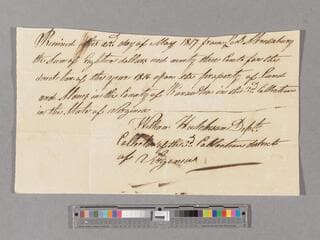 Received this 2nd day of May 1817 from
the sum of Eighteen dollars and ninety three Cents for the
direct tax of the year 1816 upon his property of land
and Slaves in the County of in the Collection
in the State of Virginia
William Hutchison Dept
Collector of the Collection district
of Virginia